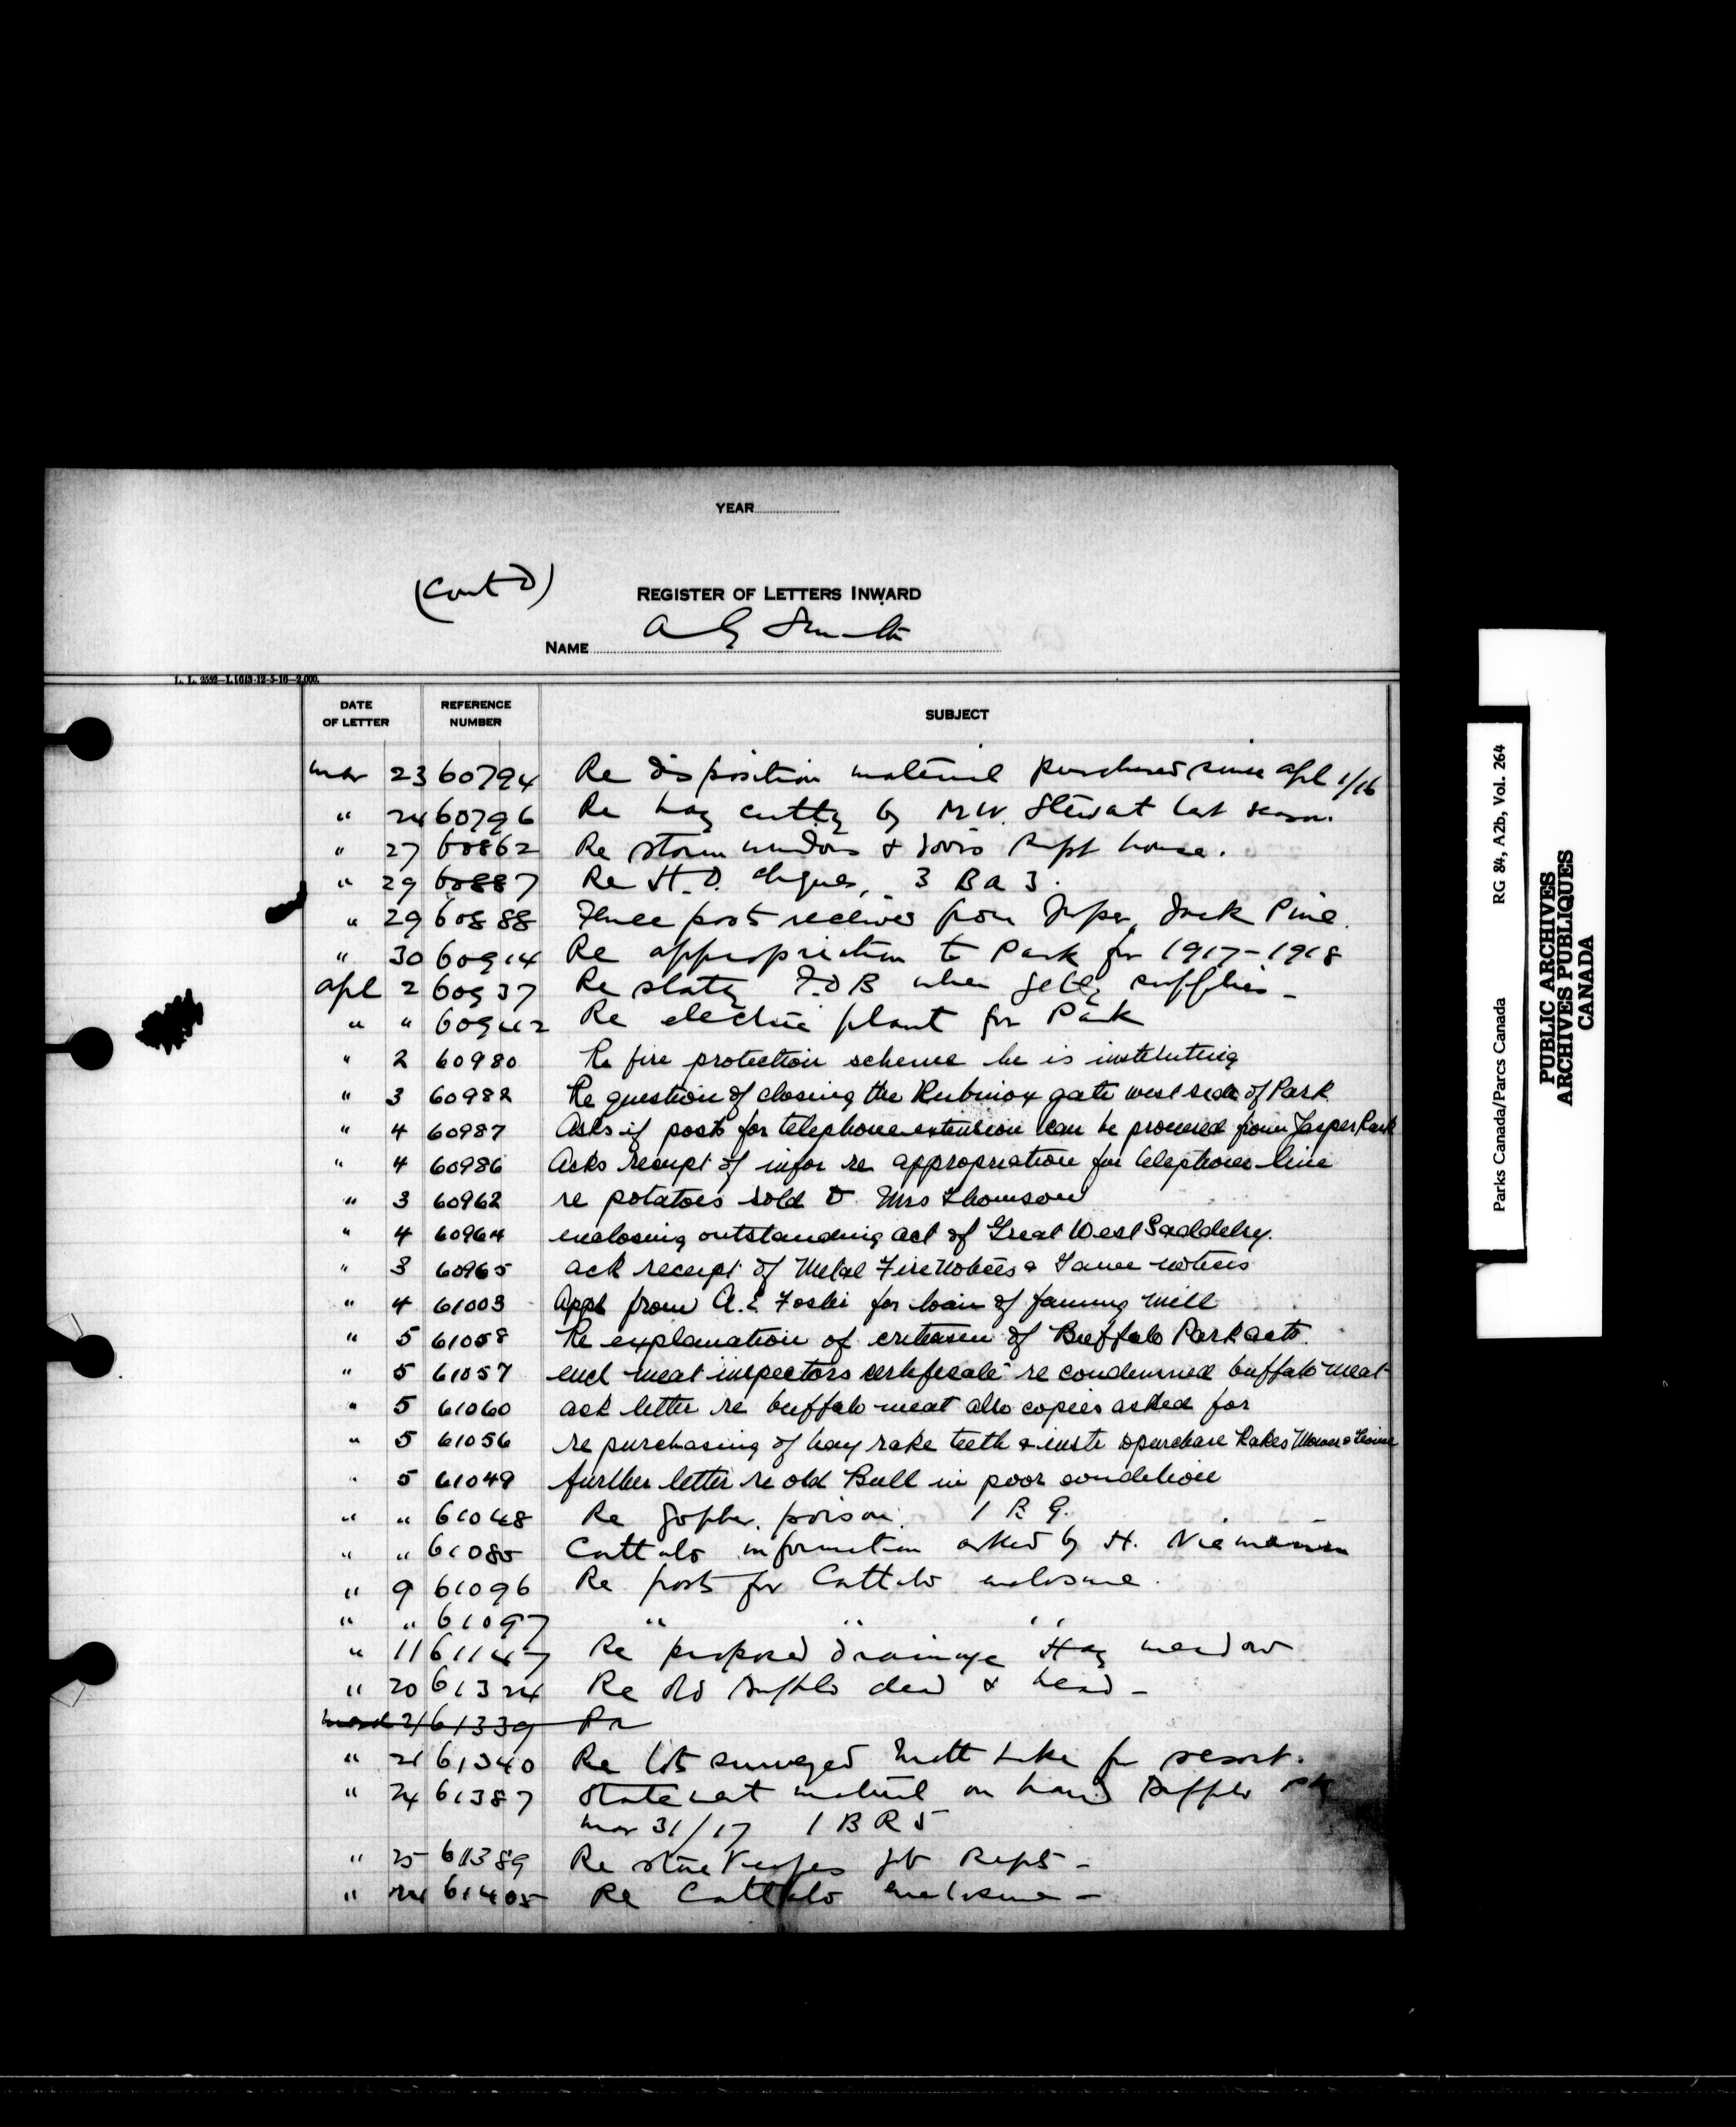 YEAR
(Cont'd)
REGISTER OF LETTERS INWARD
NAME A G Smith
L. L. 2552—L1613-12-5-16—2,000.
DATE OF LETTER REFERENCE NUMBER SUBJECT
Mar 23 60794 Re disposition material purchased since Apl 1/16
" 24 60796 Re hay cutting by M W. Stewart last season.
" 27 60862 Re storm windows & doors Supt house.
" 29 60887 Re H.O. cheques, 3 B a 3.
" 29 60888 Fence posts received from Jasper, Jack Pine.
" 30 60914 Re appropriation to Park for 1917-1918
Apl 2 60937 Re stating F.O.B when getting supplies -
" " 60942 Re electric plant for Park
" 2 60980 Re fire protection scheme he is instituting
" 3 60982 Re question of closing the gate west side of Park
" 4 60987 Asks if posts for telephone extension can be procured from Jasper Park
" 4 60986 Acks receipt of infor re appropriation for telephone line
" 3 60962 re potatoes sold to Mrs Thomson
" 4 60964 enclosing outstanding act of Great West Saddelry.
" 3 60965 ack receipt of Metal Fire Notices & Game notices
" 4 61003 Appl from A.E Foski for loan of fanning mill
" 5 61058 Re explanation of criticism of Buffalo Park acts.
" 5 61057 encl meat inspectors certificate re condemned buffalo meat
" 5 61060 ack letter re buffalo meat also copies asked for
" 5 61056 re purchasing of hay rake teeth & instr to purchase Rakes Mower &
" 5 61049 further letter re old Bull in poor condition
" " 61048 Re gopher poison. 1 B G.
" " 61085 Cattalo information asked by H. Niemann
" 9 61096 Re posts for Cattalo enclosure.
" " 61097 " " "
" 11 61147 Re proposed drainage Hay meadow
" 20 61324 Re old Buffalo dead & head -
March 21 61339 Re
" 21 61340 Re lots surveyed Mott Lake for resort.
" 24 61387 Statement material on hand Buffalo Pk
Mar 31/17 1 B R 5
" 25 61389 Re
" 24 61405 Re Cattalo enclosure -
Parks Canada/Parcs Canada RG 84, A2b, Vol. 264
PUBLIC ARCHIVES
ARCHIVES PUBLIQUES
CANADA